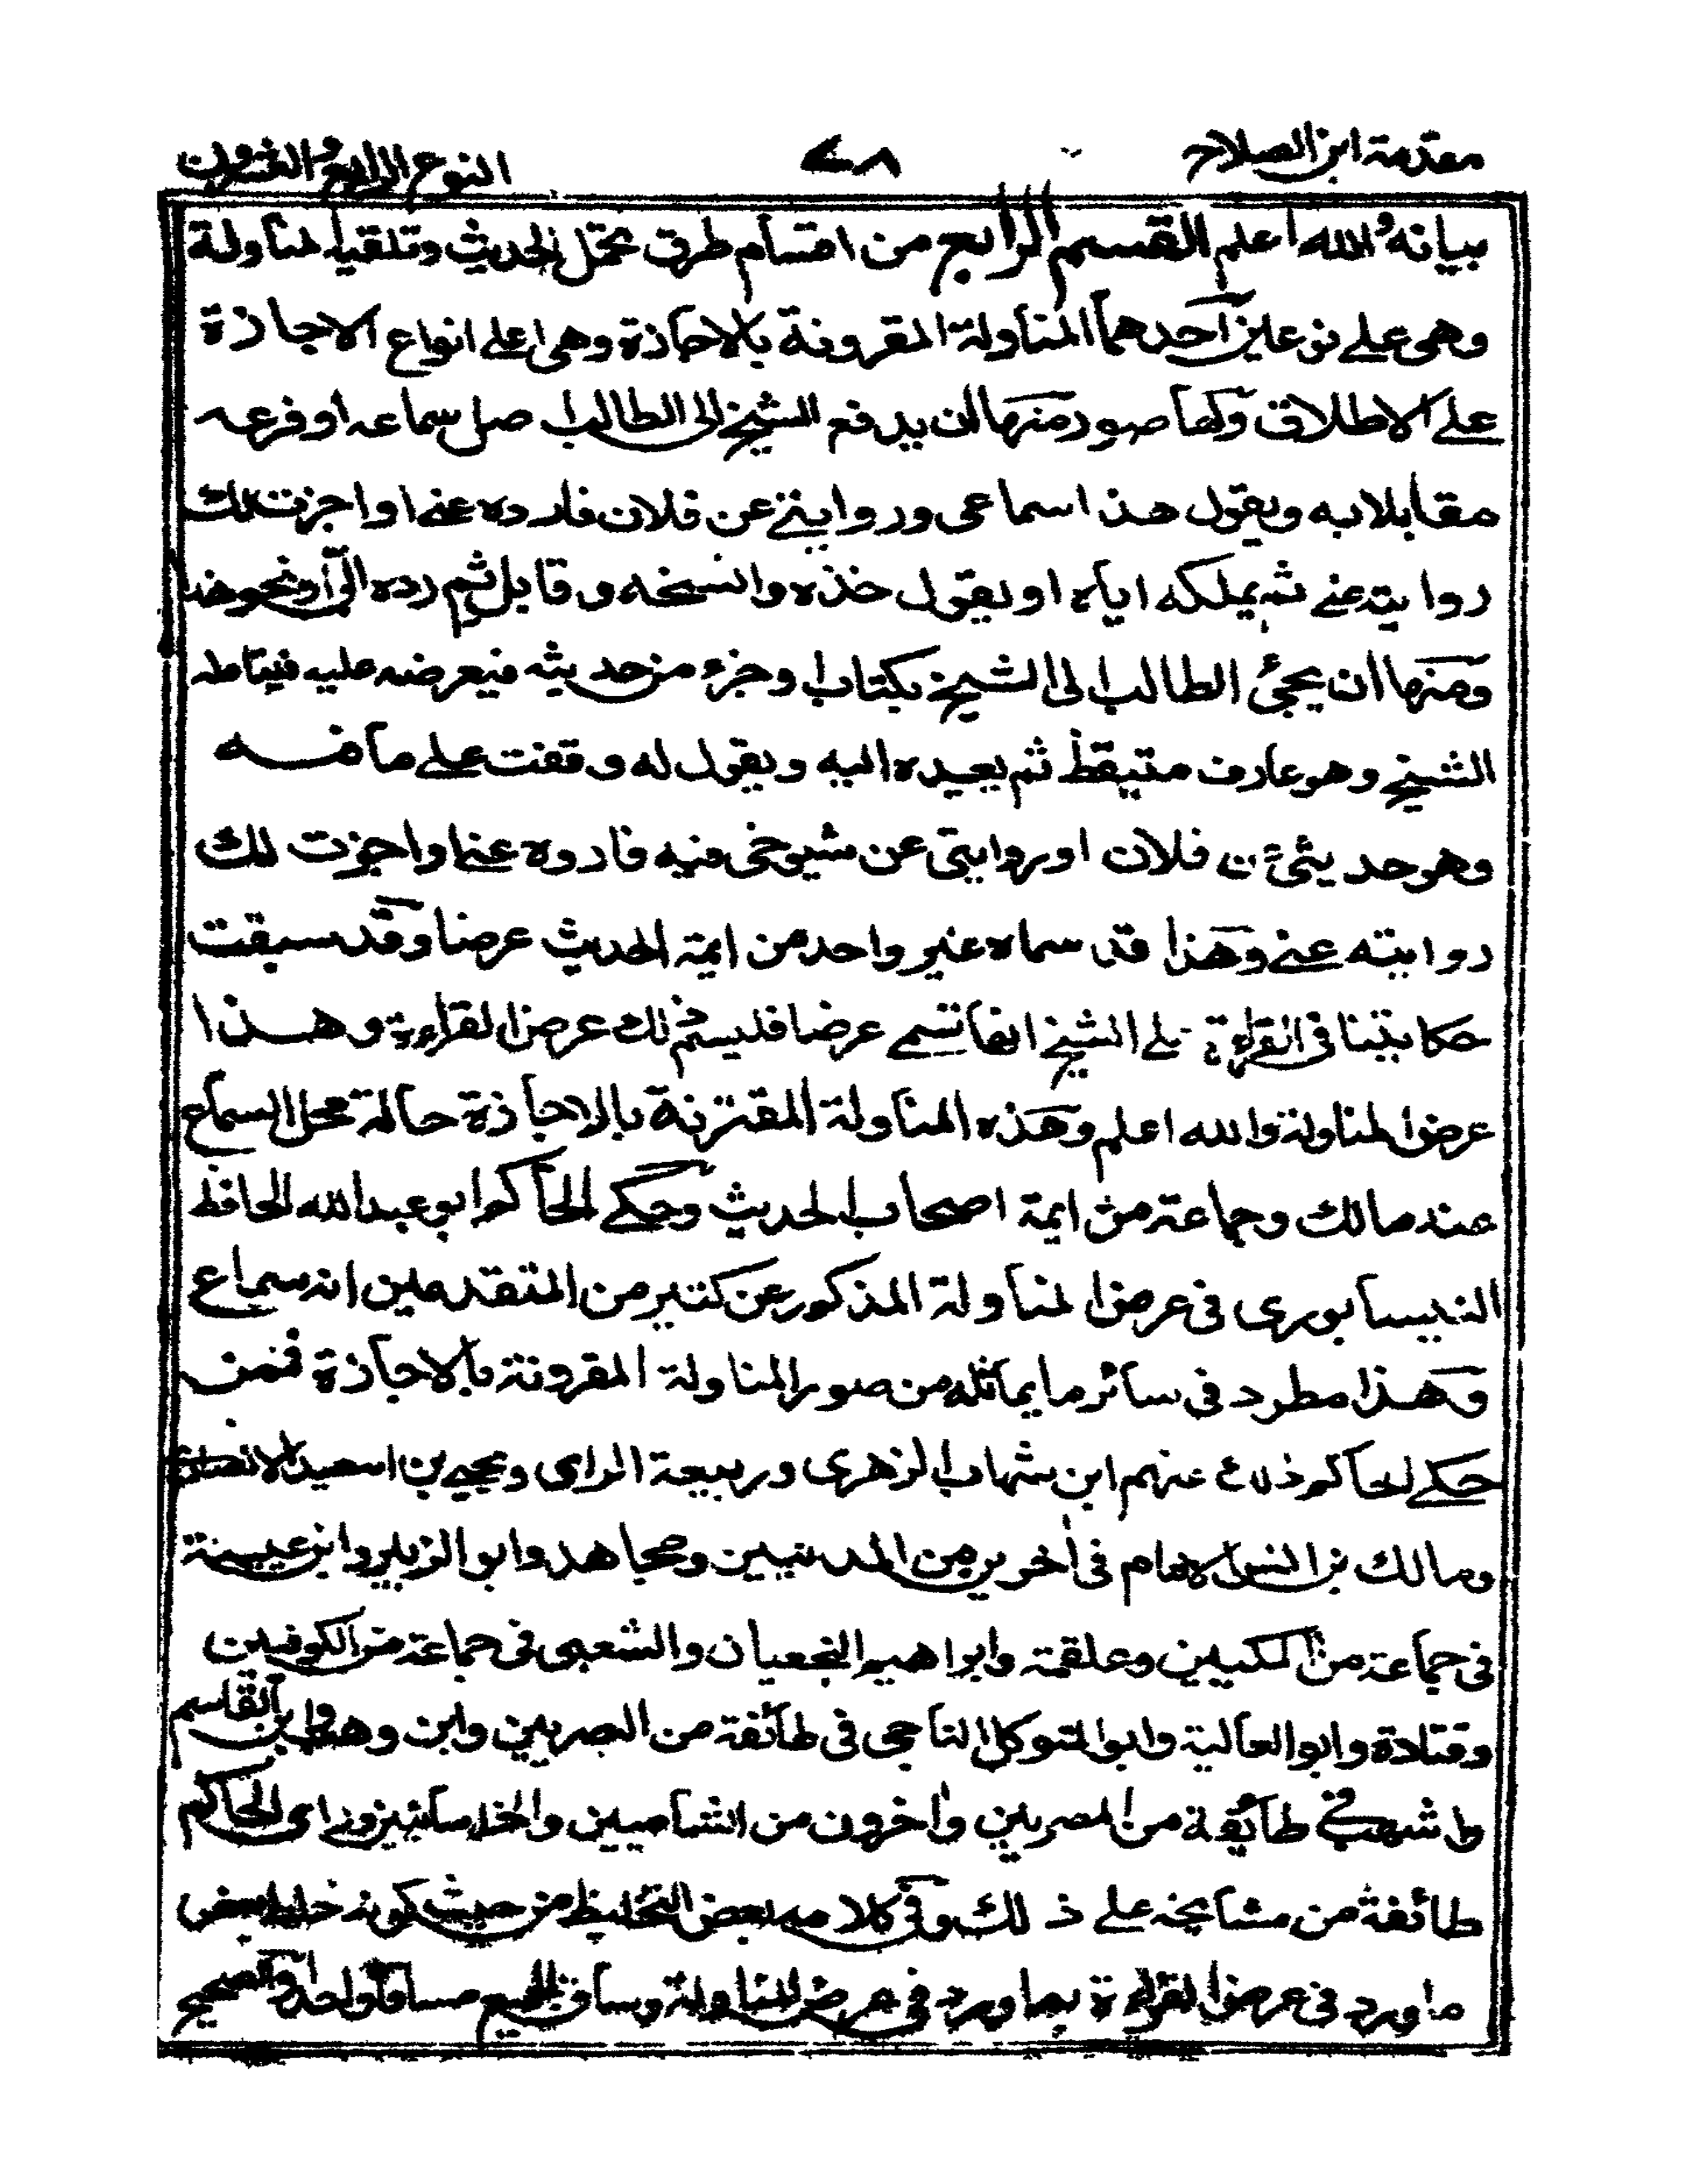 مقدمة ابن الصلاح ٧٨ النوع الرابع والعشرون
بيانه والله اعلم القسم الرابع من اقسام طرق تحمل الحديث وتلقيه المناولة
وهى على نوعين احدهما المناولة المقرونة بالاجازة وهى اعلى انواع الاجازة
على الاطلاق ولها صور منها ان يدفع الشيخ الى الطالب اصل سماعه او فرعه
مقابلا به ويقول هذا سماعى وروايتى عن فلان فاروه عنى او اجزت لك
روايته عنى ثم يملكه اياه او يقول خذه وانسخه وقابل ثم رده الى او نحو هذا
ومنها ان يجئ الطالب الى الشيخ بكتاب او جزء من حديثه فيعرضه عليه فيتامله
الشيخ وهو عارف متيقظ ثم يعيده اليه ويقول له وقفت على ما فيه
وهو حديثى عن فلان او روايتى عن شيوخى فيه فاروه عنى او اجزت لك
روايته عنى وهذا قد سماه غير واحد من ايمة الحديث عرضا وقد سبقت
حكايتنا فى القراءة على الشيخ انها تسمى عرضا فليسم ذلك عرض القراءة وهذا
عرض المناولة والله اعلم وهذه المناولة المقترنة بالاجازة حالة محل السماع
عند مالك وجماعة من ايمة اصحاب الحديث وحكى الحاكم ابو عبد الله الحافظ
النيسابورى فى عرض المناولة المذكور عن كثير من المتقدمين انه سماع
وهذا مطرد فى سائر ما يماثله من صور المناولة المقرونة بالاجازة فمن
حكى الحاكم ذلك عنهم ابن شهاب الزهرى وربيعة الراى ويحيى بن سعيد الانصارى
ومالك بن انس الامام فى اخرين من المدنيين ومجاهد وابو الزبير وابن عيينة
فى جماعة من المكيين وعلقمة وابراهيم النخعيان والشعبى فى جماعة من الكوفيين
وقتادة وابو العالية وابو المتوكل الناجى فى طائفة من البصريين وابن وهب وابن القاسم
واشهب فى طائفة من المصريين واخرون من الشاميين والخراسانيين وراى الحاكم
طائفة من مشايخه على ذلك وفى كلامه بعض التخليط من حيث كونه خلط بعض
ما ورد فى عرض القراءة بما ورد فى عرض المناولة وساق الجميع مساقا واحدا والصحيح